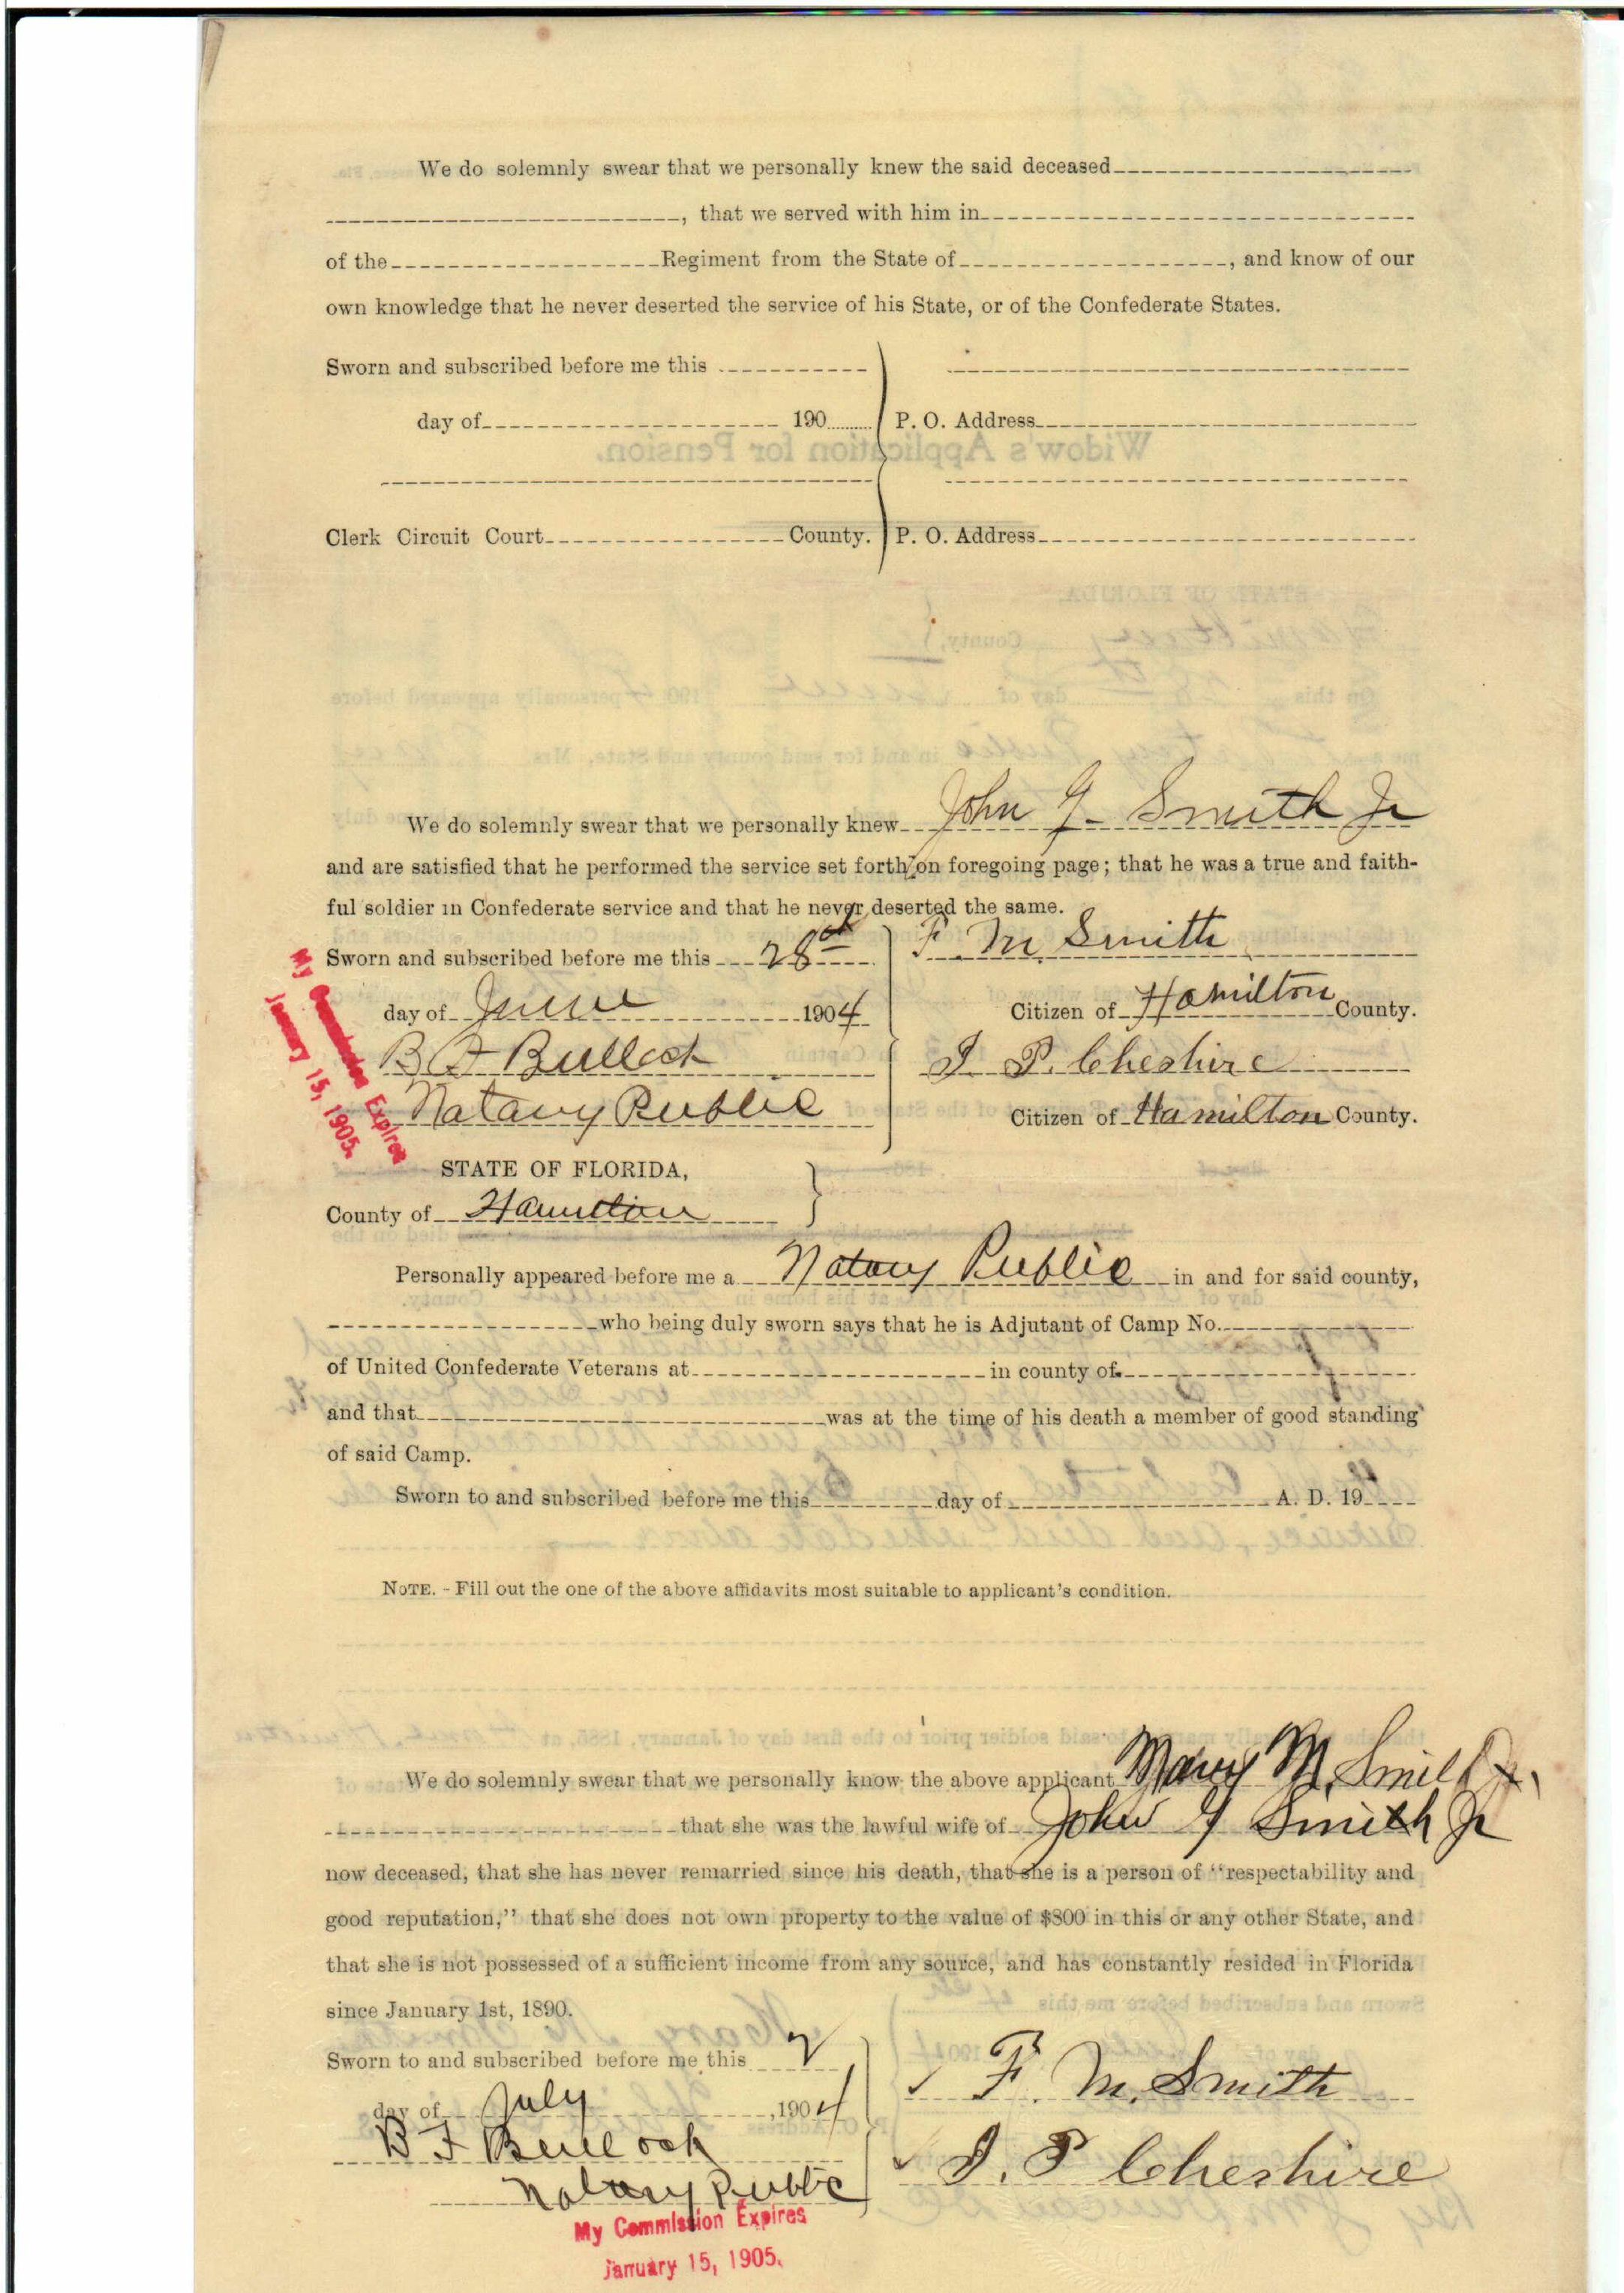 We do solemnly swear that we personally knew the said deceased
, that we served with him in
of the Regiment from the State of , and know of our
own knowledge that he never deserted the service of his State, or of the Confederate States.
Sworn and subscribed before me this
day of 190
P. O. Address
Widow's Application for Pension.
Clerk Circuit Court County.
P. O. Address
STATE OF FLORIDA
County,
We do solemnly swear that we personally knew John J. Smith Jr
and are satisfied that he performed the service set forth on foregoing page; that he was a true and faith-
ful soldier in Confederate service and that he never deserted the same.
Sworn and subscribed before me this 28th
F. M. Smith
day of June 1904
Citizen of Hamilton County.
B F Bullock
J. P. Cheshire
Notary Public
Citizen of Hamilton County.
My Commission Expires
January 15, 1905.
STATE OF FLORIDA,
County of Hamilton
Personally appeared before me a Notary Public in and for said county,
who being duly sworn says that he is Adjutant of Camp No.
of United Confederate Veterans at in county of
and that was at the time of his death a member of good standing
of said Camp.
Sworn to and subscribed before me this day of A. D. 19
NOTE. - Fill out the one of the above affidavits most suitable to applicant's condition.
We do solemnly swear that we personally know the above applicant Mary M. Smith
that she was the lawful wife of John J Smith Jr
now deceased, that she has never remarried since his death, that she is a person of "respectability and
good reputation," that she does not own property to the value of $800 in this or any other State, and
that she is not possessed of a sufficient income from any source, and has constantly resided in Florida
since January 1st, 1890.
Sworn to and subscribed before me this 2
✓ F. M. Smith
day of July , 1904
B F Bullock
✓ J. P Cheshire
Notary Public
My Commission Expires
January 15, 1905.